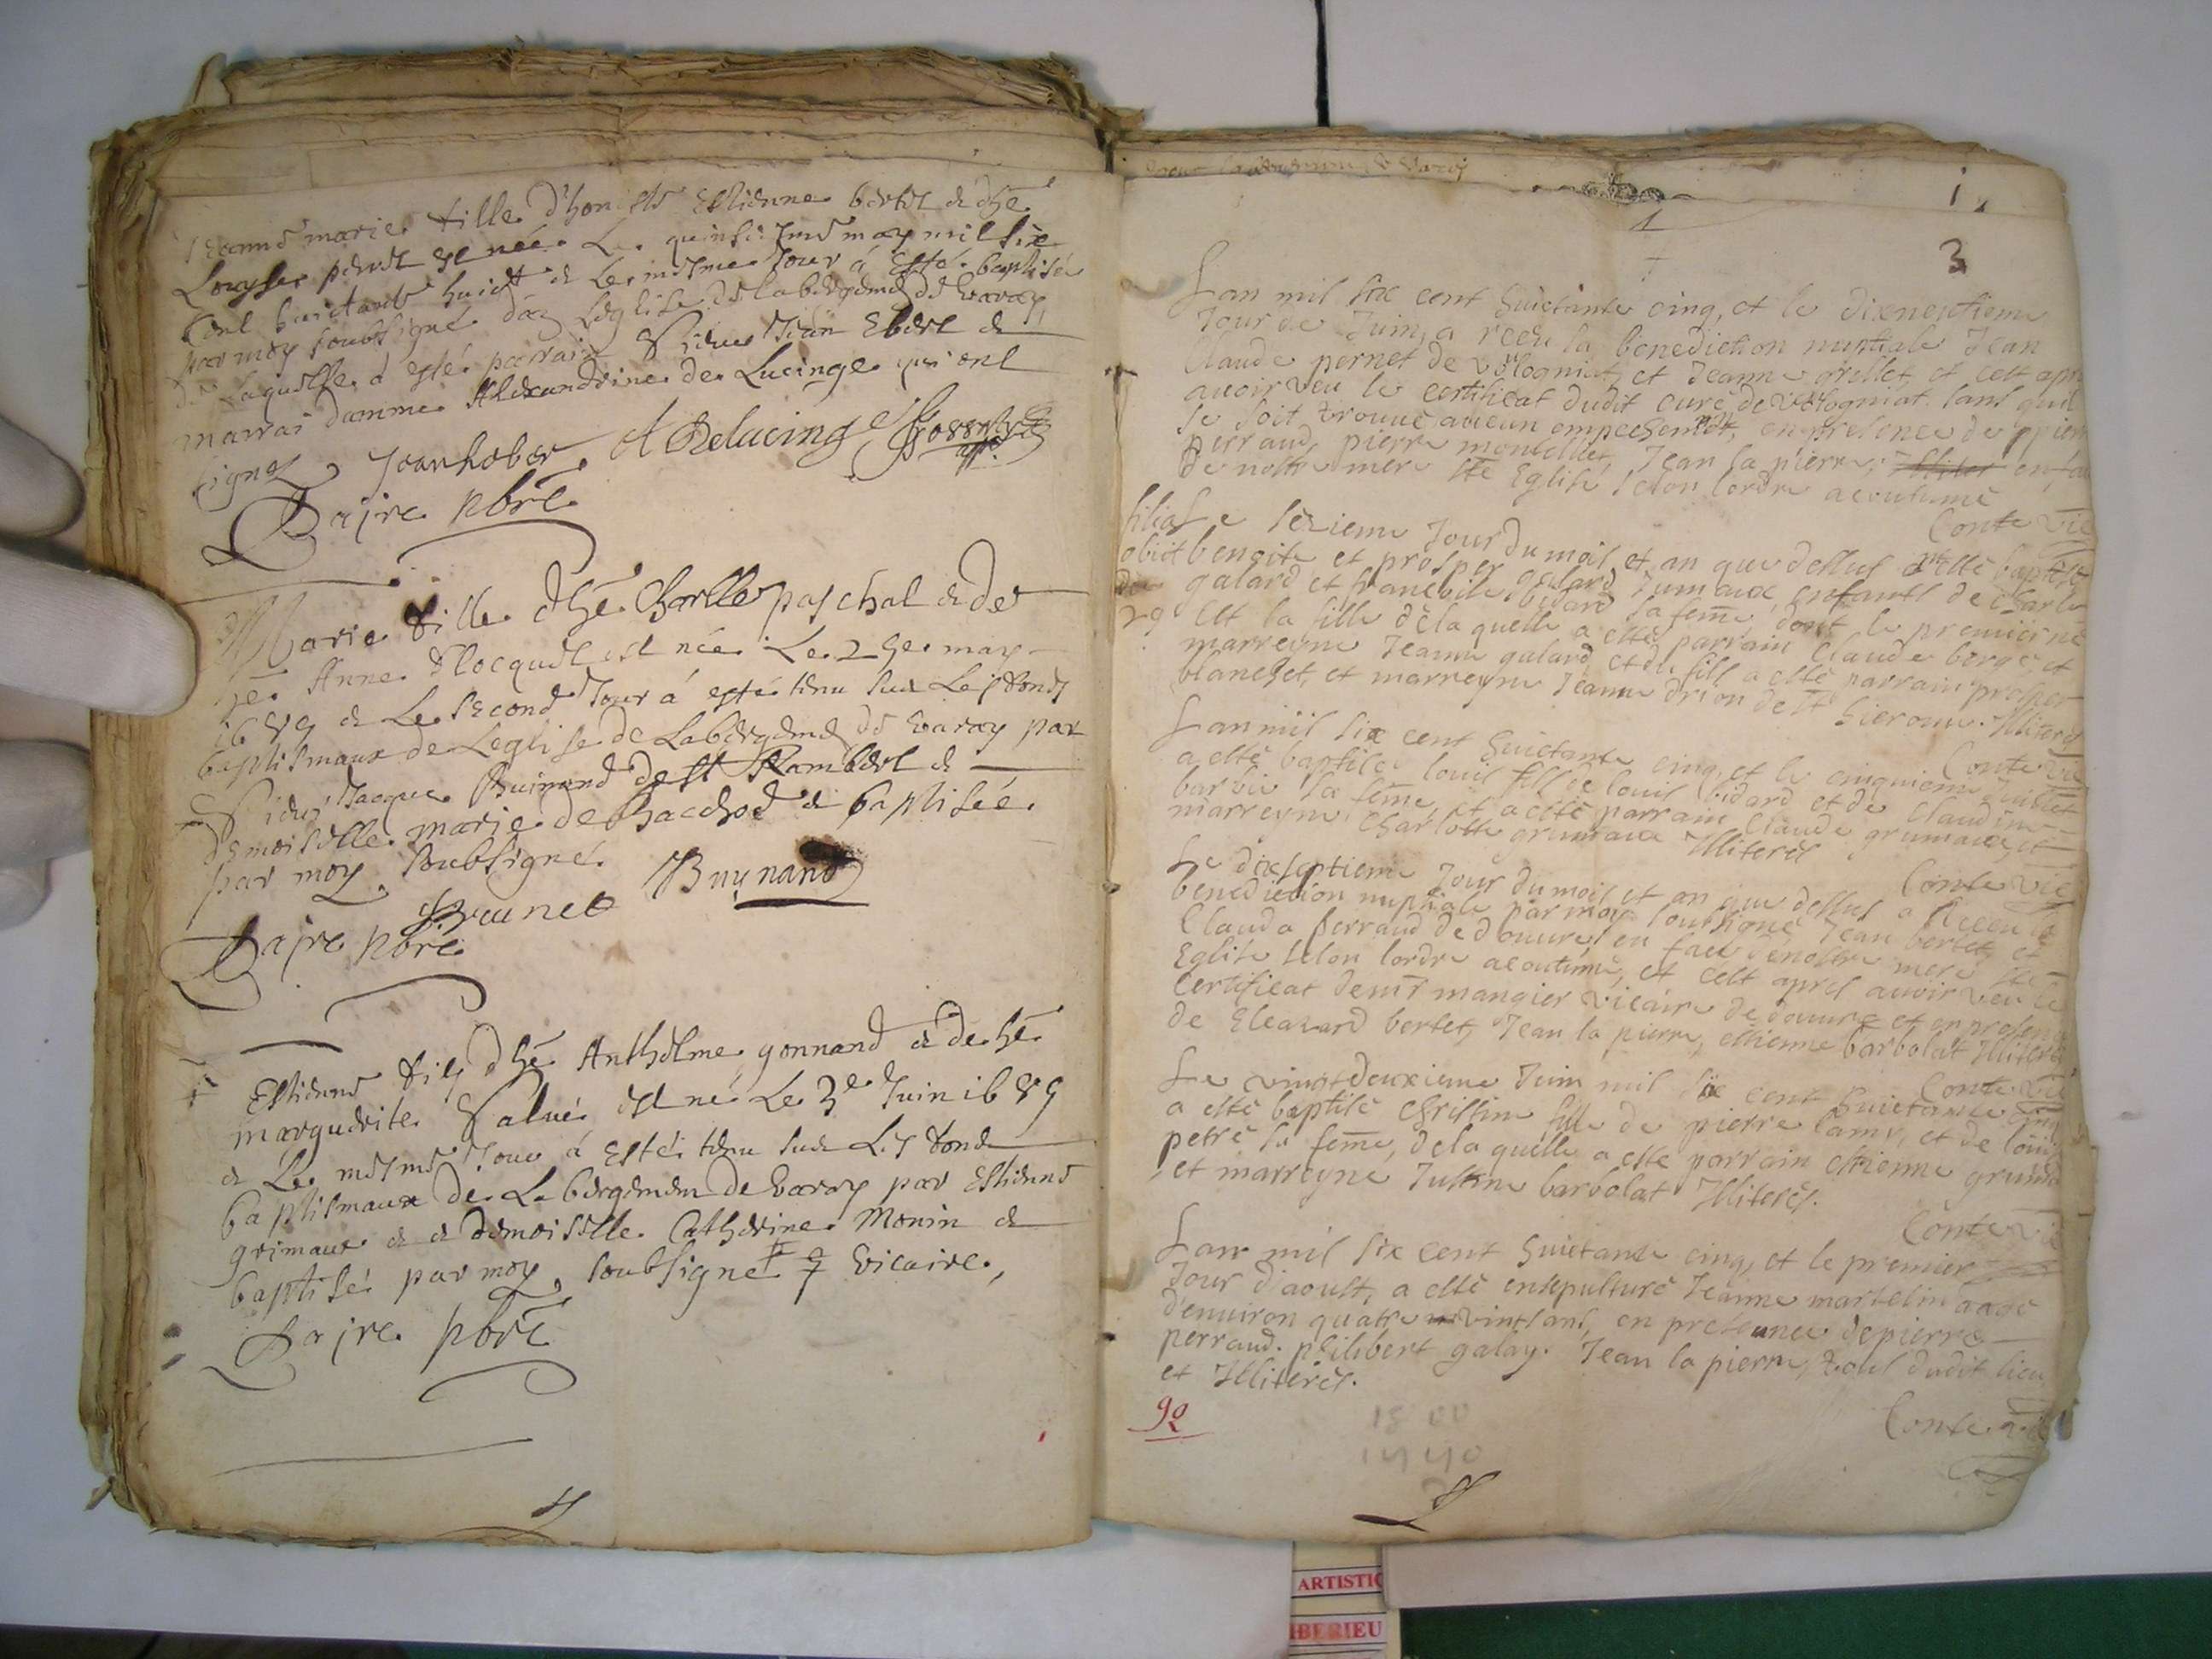 Jeanne marie fille d'honeste Estienne bertet & dhe
Louyse perret est née Le quinsi: may mil six
Cent huictante huict & Le mesme Jour á Esté baptisée
par moy soubsigné dāz Leglise de labergeme de varay
de Laquelle á esté parrain Sieur Jean Ebert &
marrai damme Alexandrine de Lucinge qui ont
signez Jean hober A Delucinge
Dajre pbre
Marie fille dhe Charlle paschal & de
he Anne Flocquet est née Le 29e may
1689 & Le second Jour á esté tenu sur Les fonds
baptismaux de Leglise de Labergeme de varay par
Sieur Jacque Buinand de st Rambert &
demoiselle marie de Bacchod & baptisée
par moy soubsigné Buynand
Brunet
Dajre pbre
Estienne fils dhe Anthelme gonnand & de he
marguerite Salué est né Le 3e Juin 1689
& Le mesme Jour á Esté tenu sur Les fond
baptismaux de Labergement de varay par Estienne
grimaux & & demoiselle Catherine Monin &
baptisé par moy soubsigné vicaire
Dajre pbre
1
1
3
Lan mil six cent huictante cinq, et le dixneufieme
Jour de Juin, a receu la benediction nuptiale Jean
Claude pernet de vologniat et Jeanne grillet, et cest apres
auoir veu le certificat dudit curé de vologniat sans quil
se soit trouué aucun empeschement, en presence de pierre
perraud, pierre montillet, Jean la pierre, en face
de nostre mere ste Eglise selon lordre acoutumé
Conte vic
filia
obiit
29
Le sezieme Jour du mois et an que dessus ont esté baptisé
benoite et prosper galard Jumaux enfants de charle
galard et francoise bidard sa feme, dont le premier né
est la fille de la quelle a esté parrain Claude berge et
marreyne Jeanne galard, et du fils a esté parrain prosper
blanchet, et marreyne Jeanne drion de st hierome. Illiterés
Conte vic
Lan mil six cent huictante cinq, et le cinquieme Juillet
a esté baptisé louis fils de louis bidard et de Claudine
barbie sa feme, et a esté parrain Claude grumaux, et
marreyne Charlotte grumaux Illiterés
Conte vic
Le dixseptieme Jour du mois et an que dessus a Receu la
benediction nuptiale par moy soubsigné Jean bertet et
Clauda perraud de douures en face de nostre mere ste
Eglise selon lordre acoutumé, et cest apres auoir veu le
Certificat de mr mangier vicaire de douures et en presence
de Eleazard bertet, Jean la pierre, estienne barbolat Illiterés
Conte vic
Le vingtdeuxieme Juin mil six cent huictante cinq
a esté baptisé Christine fille de pierre lamy, et de louise
petré sa feme, de la quelle a esté parrain estienne gruma
et marreyne Justine barbolat Illiterés.
Conte vic
Lan mil six cent huictante cinq, et le premier
Jour d'aoust, a esté ensepulturé Jeanne martelin aagé
d'enuiron quatre vints ans, en presence de pierre
perraud. philibert galay. Jean la pierre, tous dudit lieu
et Illiterés.
Conte vic
92
ARTISTIC
IBERIEU